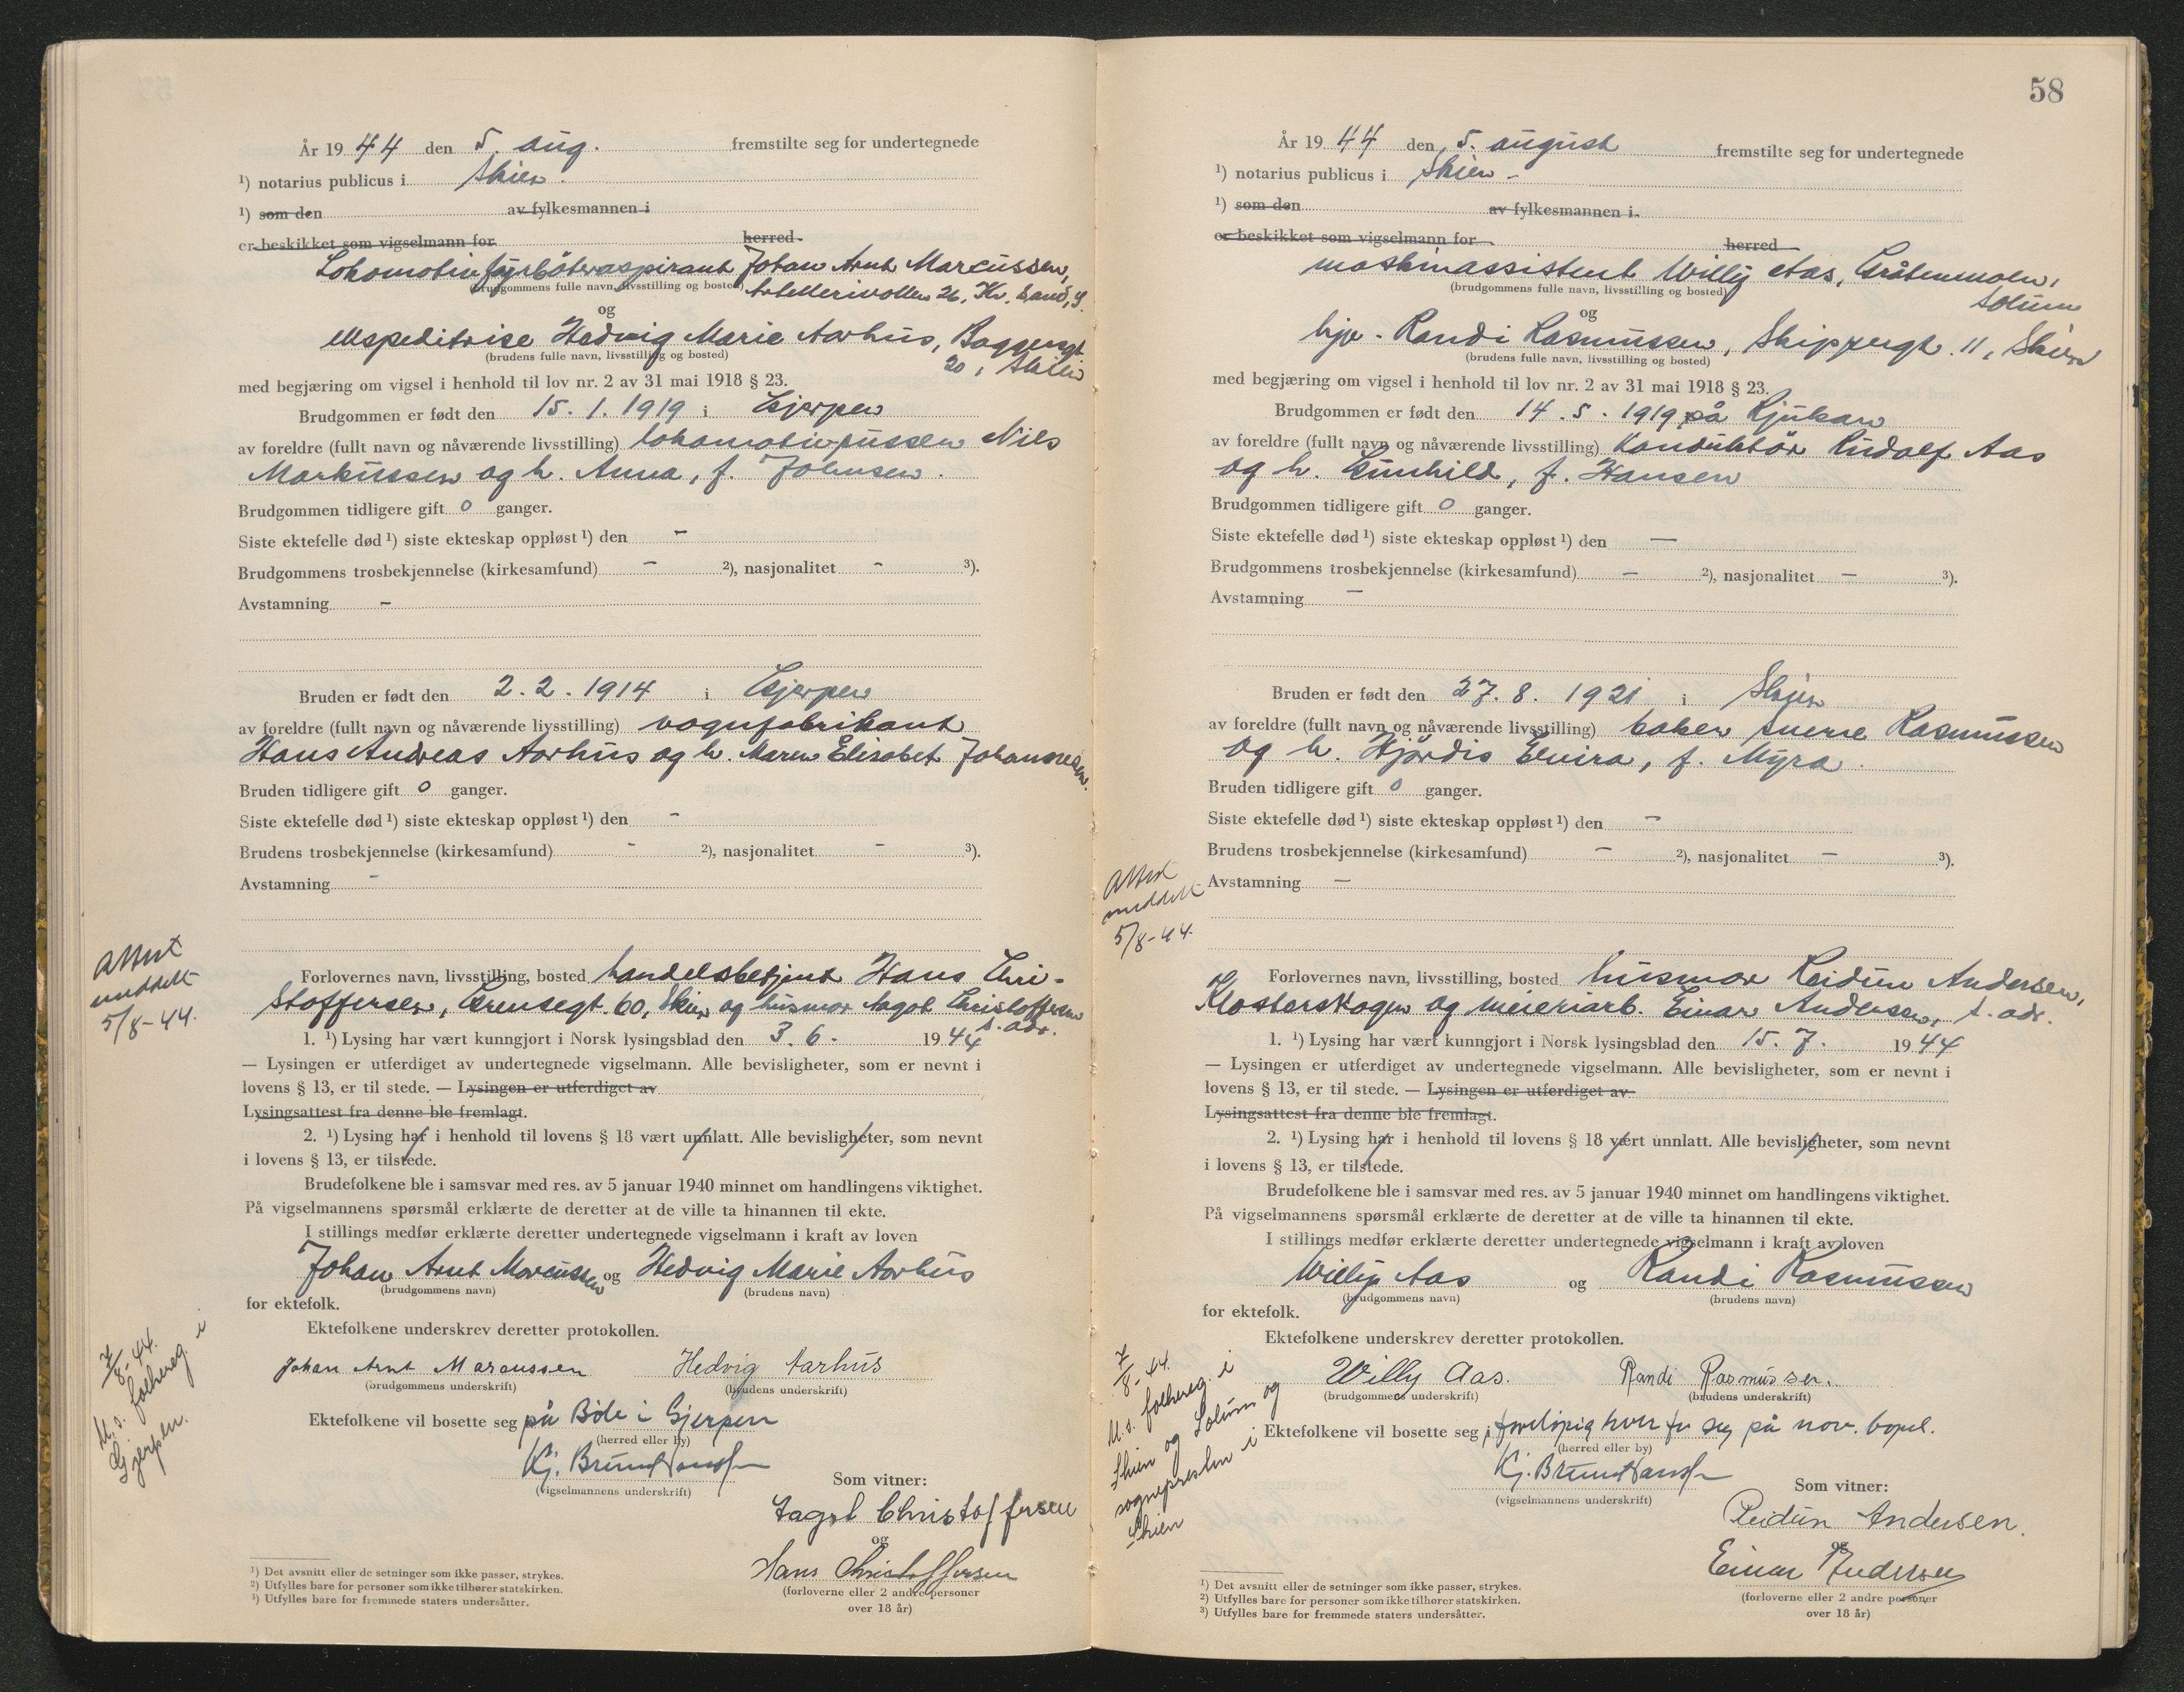 År 19 44 den 5. aug. fremstilte seg for undertegnede
¹) notarius publicus i Skien.
¹) som den av fylkesmannen i
er beskikket som vigselmann for herred
Lokomotivfyrbøteraspirant Johan Arnt Marcussen,
(brudgommens fulle navn, livsstilling og bosted) Artillerivollen 26, Kr.sand, S.
og
ekspeditrise Hedvig Marie Aarhus, Baggersgt.
(brudens fulle navn, livsstilling og bosted) 20, Skien
med begjæring om vigsel i henhold til lov nr. 2 av 31 mai 1918 § 23.
Brudgommen er født den 15. 1. 1919 i Gjerpen
av foreldre (fullt navn og nåværende livsstilling) lokomotivpusser Nils
Markussen og h. Anna, f. Johnsen.
Brudgommen tidligere gift 0 ganger.
Siste ektefelle død ¹) siste ekteskap oppløst ¹) den -
Brudgommens trosbekjennelse (kirkesamfund) - ²), nasjonalitet - ³).
Avstamning -
Bruden er født den 2. 2. 1914 i Gjerpen
av foreldre (fullt navn og nåværende livsstilling) vognfabrikant
Hans Andreas Aarhus og h. Maren Elisabet Johannesen.
Bruden tidligere gift 0 ganger.
Siste ektefelle død ¹) siste ekteskap oppløst ¹) den -
Brudens trosbekjennelse (kirkesamfund) - ²), nasjonalitet - ³).
Avstamning -
Attest
meddelt
5/8-44.
Forlovernes navn, livsstilling, bosted handelsbetjent Hans Chri-
stoffersen, Grensegt. 60, Skien og husmor Aagot Christoffersen
s. adr.
1. ¹) Lysing har vært kunngjort i Norsk lysingsblad den 3. 6. 19 44
— Lysingen er utferdiget av undertegnede vigselmann. Alle bevisligheter, som er nevnt i
lovens § 13, er til stede. — Lysingen er utferdiget av
Lysingsattest fra denne ble fremlagt.
2. ¹) Lysing har i henhold til lovens § 18 vært unnlatt. Alle bevisligheter, som nevnt
i lovens § 13, er tilstede.
Brudefolkene ble i samsvar med res. av 5 januar 1940 minnet om handlingens viktighet.
På vigselmannens spørsmål erklærte de deretter at de ville ta hinannen til ekte.
I stillings medfør erklærte deretter undertegnede vigselmann i kraft av loven
Johan Arnt Marcussen og Hedvig Marie Aarhus
(brudgommens navn) (brudens navn)
for ektefolk.
Ektefolkene underskrev deretter protokollen.
Johan Arnt Marcussen Hedvig Aarhus
(brudgommens underskrift) (brudens underskrift)
7/8-44.
M. s. folkereg. i
Gjerpen.
Ektefolkene vil bosette seg på Böle i Gjerpen
(herred eller by)
Kj. Brun Hansen
(vigselmannens underskrift)
Som vitner:
Aagot Christoffersen
og
Hans Christoffersen
(forloverne eller 2 andre personer
over 18 år)
¹) Det avsnitt eller de setninger som ikke passer, strykes.
²) Utfylles bare for personer som ikke tilhører statskirken.
³) Utfylles bare for fremmede staters undersåtter.
58
År 19 44 den 5. august fremstilte seg for undertegnede
¹) notarius publicus i Skien -
¹) som den av fylkesmannen i
er beskikket som vigselmann for herred
maskinassistent Willy Aas, Gråtenmoen,
(brudgommens fulle navn, livsstilling og bosted) Solum
og
hjv. Randi Rasmussen, Skippergt. 11, Skien
(brudens fulle navn, livsstilling og bosted)
med begjæring om vigsel i henhold til lov nr. 2 av 31 mai 1918 § 23.
Brudgommen er født den 14. 5. 1919 på Rjukan
av foreldre (fullt navn og nåværende livsstilling) Konduktör Rudolf Aas
og h. Gunhild, f. Hansen
Brudgommen tidligere gift 0 ganger.
Siste ektefelle død ¹) siste ekteskap oppløst ¹) den —
Brudgommens trosbekjennelse (kirkesamfund) — ²), nasjonalitet — ³).
Avstamning —
Bruden er født den 27. 8. 1921 i Skien
av foreldre (fullt navn og nåværende livsstilling) baker Sverre Rasmussen
og h. Hjördis Elvira, f. Myra.
Bruden tidligere gift 0 ganger.
Siste ektefelle død ¹) siste ekteskap oppløst ¹) den -
Brudens trosbekjennelse (kirkesamfund) - ²), nasjonalitet — ³).
Avstamning —
Attest
meddelt
5/8-44.
Forlovernes navn, livsstilling, bosted husmor Reidun Andersen,
Klosterskogen og meieriarb. Einar Andersen, s. adr.
1. ¹) Lysing har vært kunngjort i Norsk lysingsblad den 15. 7. 19 44
— Lysingen er utferdiget av undertegnede vigselmann. Alle bevisligheter, som er nevnt i
lovens § 13, er til stede. — Lysingen er utferdiget av
Lysingsattest fra denne ble fremlagt.
2. ¹) Lysing har i henhold til lovens § 18 vært unnlatt. Alle bevisligheter, som nevnt
i lovens § 13, er tilstede.
Brudefolkene ble i samsvar med res. av 5 januar 1940 minnet om handlingens viktighet.
På vigselmannens spørsmål erklærte de deretter at de ville ta hinannen til ekte.
I stillings medfør erklærte deretter undertegnede vigselmann i kraft av loven
Willy Aas og Randi Rasmussen
(brudgommens navn) (brudens navn)
for ektefolk.
Ektefolkene underskrev deretter protokollen.
Willy Aas. Randi Rasmussen.
(brudgommens underskrift) (brudens underskrift)
7/8-44.
M. s. folkereg. i
Skien og Solum og
sognepresten i
Skien
Ektefolkene vil bosette seg i foreløpig hver for seg på nov. bopel.
(herred eller by)
Kj. Brun Hansen
(vigselmannens underskrift)
Som vitner:
Reidun Andersen.
og
Einar Andersen
(forloverne eller 2 andre personer
over 18 år)
¹) Det avsnitt eller de setninger som ikke passer, strykes.
²) Utfylles bare for personer som ikke tilhører statskirken.
³) Utfylles bare for fremmede staters undersåtter.